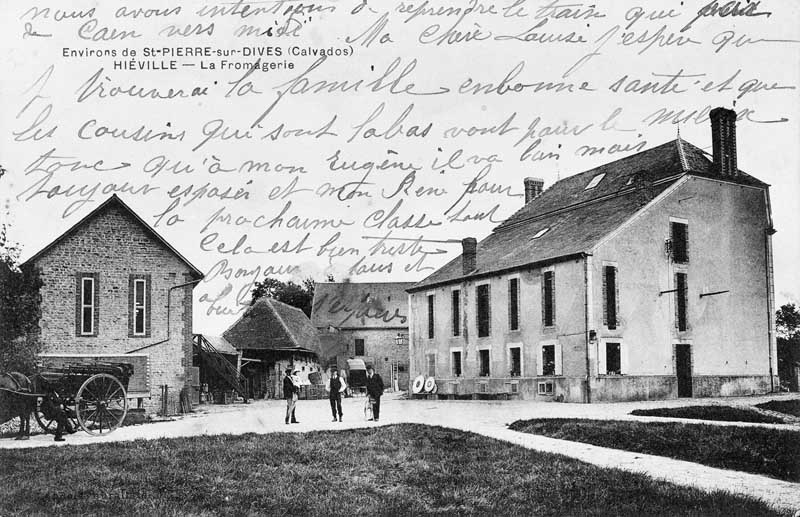 nous avons intentions de reprendre le train qui part
de Caen vers midi Ma Chère Louise j'espère que
Environs de St-PIERRE-sur-DIVES (Calvados)
HIÉVILLE — La Fromagerie
je trouverai la famille en bonne santé et que
les cousins qui sont labas vont pour le mieux
quà mon Eugène il va bien mais
toujours esposer et mon René pour
la prochaine classe tout
Cela est bien triste
Bonjour a tous et